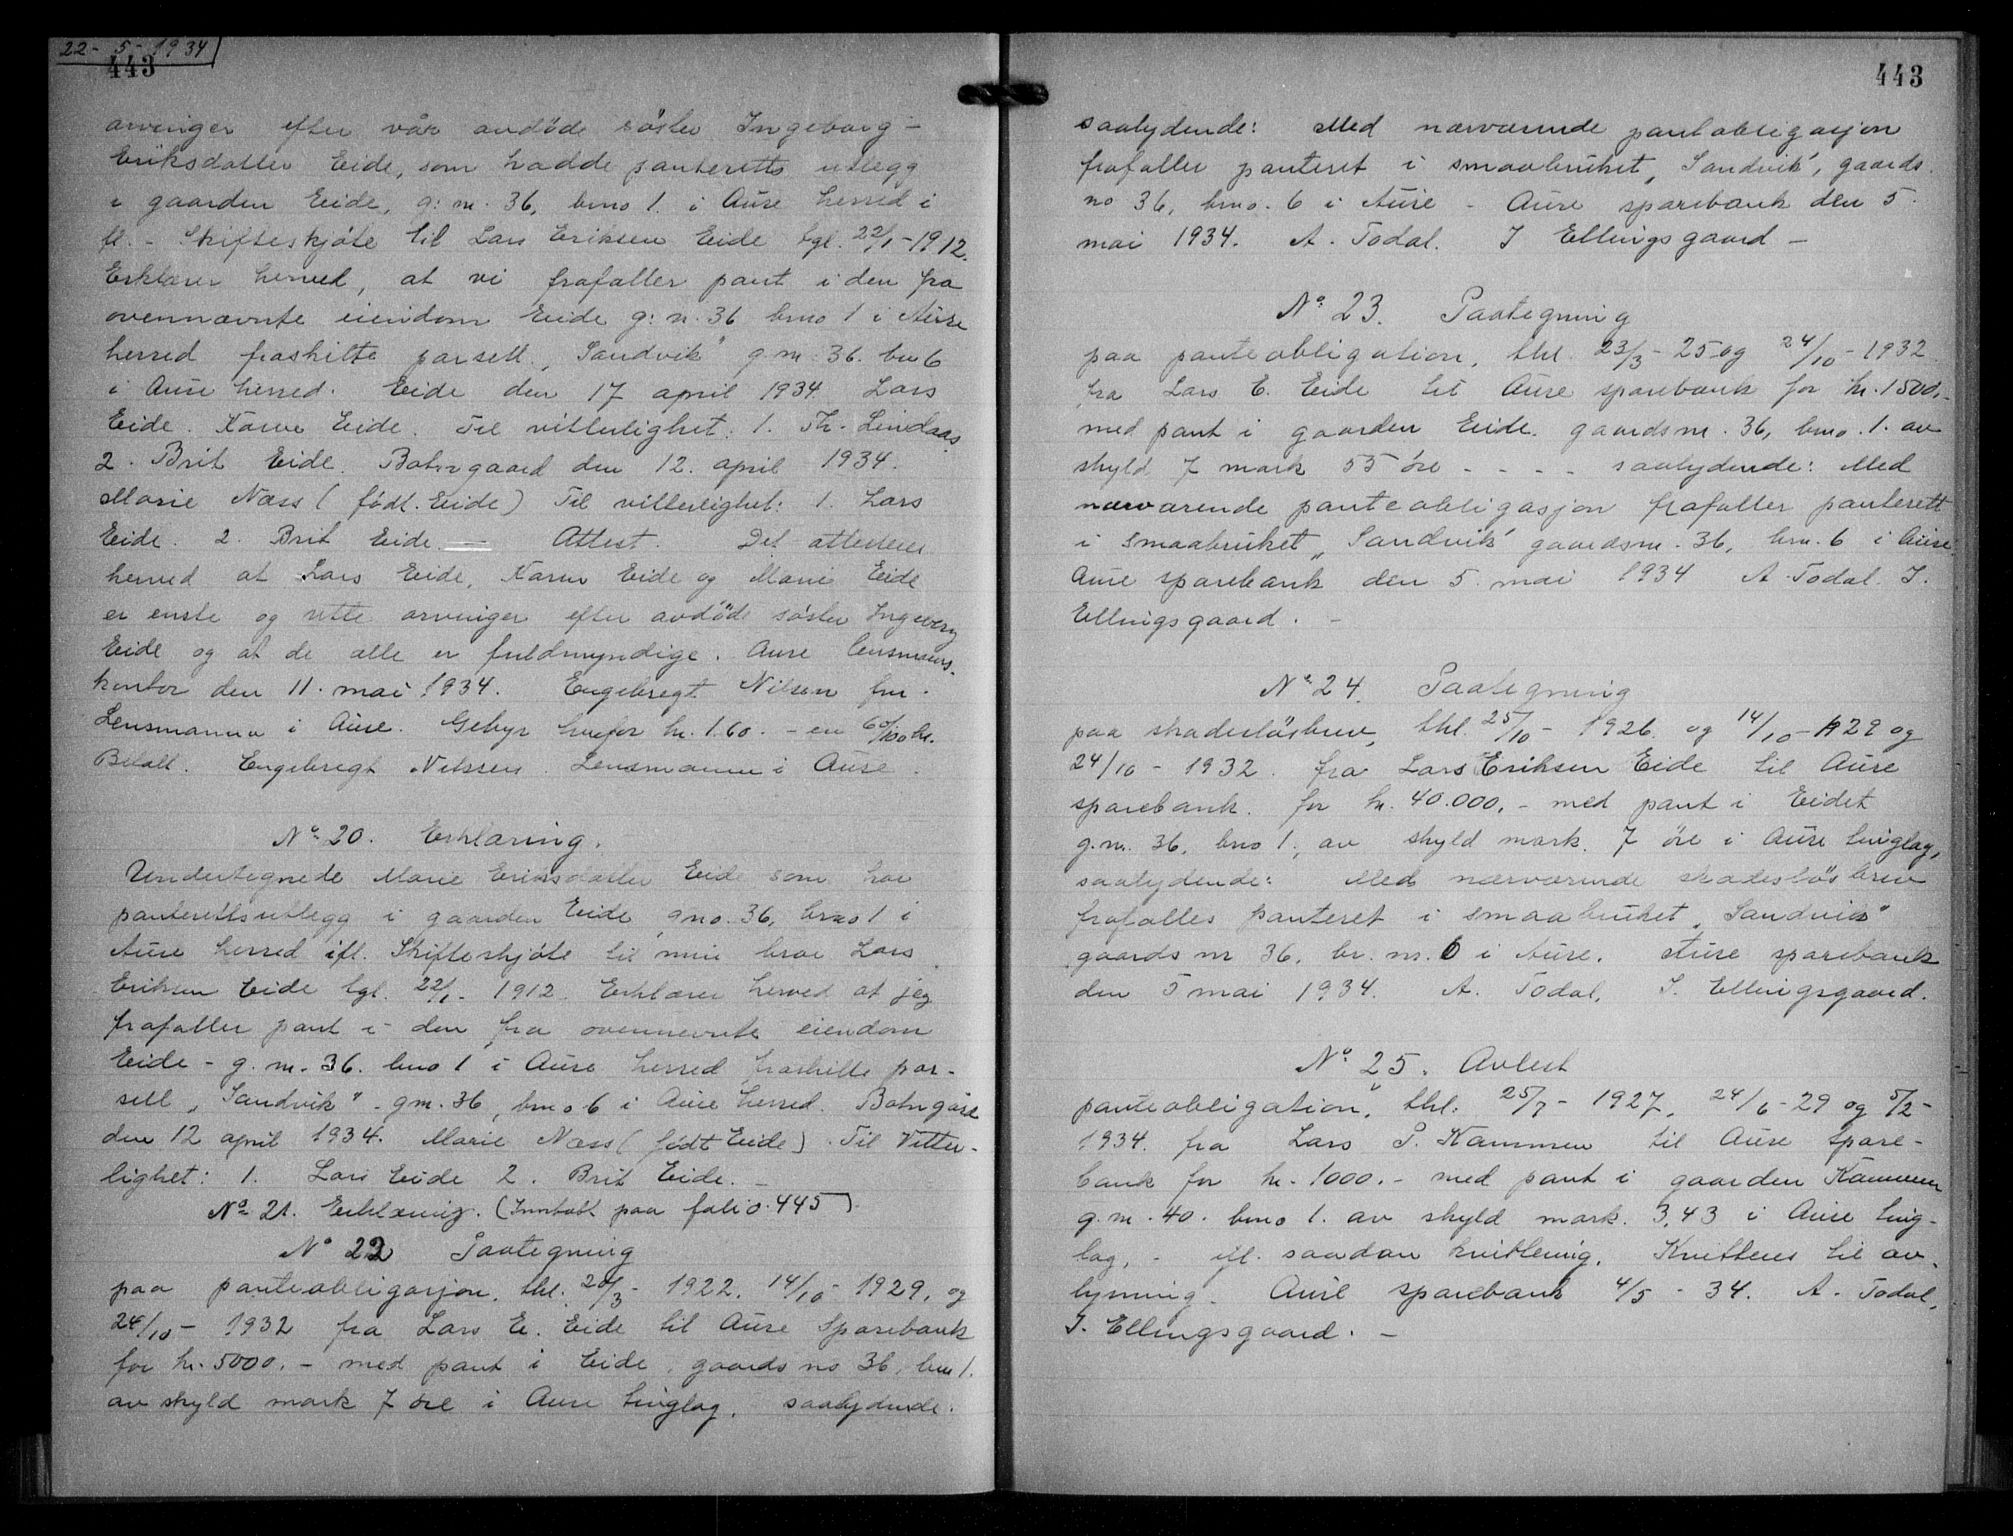 22-5-1934
443
arvinger efter vår avdöde söster Ingeborg -
Eriksdatter Eide, som hadde panteretts utlegg
i gaarden Eide, g: nr. 36, brno 1. i Aure herred i
fl. - Skifteskjöte til Lars Eriksen Eide tgl. 22/1-1912.
Erklærer herved, at vi frafaller pant i den fra
ovennævnte eiendom Eide g: n. 36 brno 1 i Aure
herred fraskilte parsell, "Sandvik" g nr. 36. bn 6
i Aure herred. Eide den 17 april 1934 Lars
Eide. Karen Eide. Til vitterlighet: 1. Th. Lindaas
2. Brit Eide. Botngaard den 12. april 1934.
Marie Næss (födt. Eide) Til vitterlighet: 1. Lars
Eide. 2. Brit Eide. — Attest. Det attesteres
herved at Lars Eide, Karen Eide og Marie Eide
er eneste og rette arvinger efter avdöde söster Ingeborg
Eide og at de alle er fuldmyndige. Aure lensmans-
kontor den 11. mai 1934. Engebregt Nilsen
Lensmannen i Aure. Gebyr herfor kr. 1.60. - en 60/100 kr.
Betalt. Engebregt Nilssen Lensmannen i Aure.
No 20. Erklæring.
Undertegnede Marie Eriksdatter Eide som har
panterettsutlegg i gaarden Eide, gno. 36, brno 1 i
Aure herred ifl. Skifteskjöte til min bror Lars
Eriksen Eide tgl. 22/1- 1912. Erklærer herved at jeg
frafaller pant i den fra ovennevnte eiendom
Eide - g. nr. 36. brno 1 i Aure herred fraskilte par-
sell "Sandvik" - gnr. 36, brno 6 i Aure herred. Botngård
den 12 april 1934. Marie Næss (födt Eide) Til Vitter-
lighet: 1. Lars Eide 2. Brit Eide. -
No 21. Erklæring. (Inntatt paa folio. 445)
No 22 Paategning
paa panteobligasjon, thl. 20/3- 1922. 14/10- 1929, og
24/10- 1932 fra Lars E. Eide til Aure Sparebank
for kr. 5000. - med pant i Eide, gaards no 36, brn 1.
av skyld mark 7 öre i Aure tinglag, saalydende:
443
saalydende: Med nærværende pantobligasjon
frafaller panteret i smaabruket, "Sandvik", gaards
no 36, brno. 6 i Aure - Aure sparebank den 5.
mai 1934. A. Todal. I Ellingsgaard -
No 23. Paategning
paa panteobligation, thl. 23/3- 25 og 24/10-1932
fra Lars E. Eide til Aure sparebank for kr. 1500.-
med pant i gaarden Eide. gaardsnr. 36, brno. 1. av
skyld 7 mark 55 öre - - - - saalydende: Med
nærværende panteobligasjon frafaller panterett
i smaabruket "Sandvik" gaardsnr. 36, brn. 6 i Aure
Aure sparebank den 5. mai 1934 A. Todal. I.
Ellingsgaard. -
No 24. Paategning
paa skadeslösbrev, thl. 25/10- 1926. og 14/10- 29 og
24/10 - 1932. fra Lars Eriksen Eide til Aure
sparebank. for kr. 40.000. - med pant i Eidet
g. nr. 36, brno 1, av skyld mark. 7 öre i Aure tinglag,
saalydende: Med nærværende skadeslös brev
frafalles panteret i smaabruket "Sandvik"
gaards nr 36, br. nr. 6 i Aure. Aure sparebank
den 5 mai 1934. A. Todal, I. Ellingsgaard.
No 25. Avlest
panteobligation, thl. 25/7- 1927, 24/6- 29 og 5/2-
1934. fra Lars P. Kammen til Aure Spare-
bank for kr. 1000. - med pant i gaarden Kammen
g. nr. 40. brno 1. av skyld mark. 3,43 i Aure ting-
lag, - ifl. saadan kvittering. Kvitteres til av-
lysning. Aure sparebank 4/5 - 34. A. Todal,
I. Ellingsgaard. -